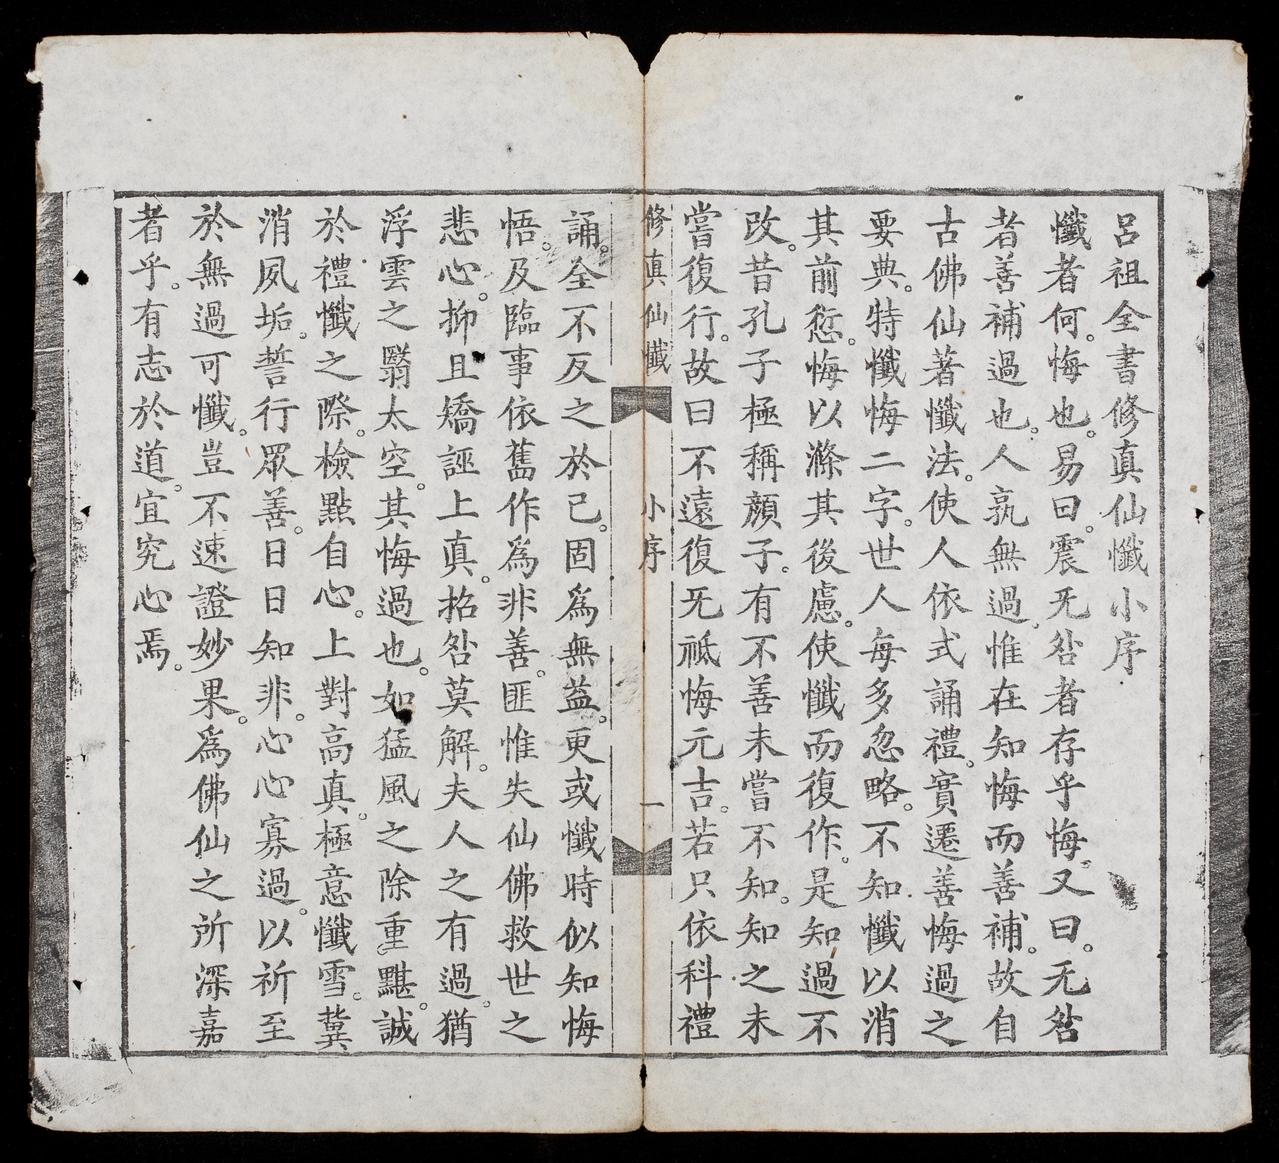 呂祖全書修真仙懺小序
懺者何。悔也。易曰。震无咎者存乎悔。又曰。无咎
者善補過也。人孰無過。惟在知悔而善補。故自
古佛仙著懺法。使人依式誦禮。實遷善悔過之
要典。特懺悔二字。世人每多忽略。不知懺以消
其前愆。悔以滌其後慮。使懺而復作。是知過不
改。昔孔子極稱顏子。有不善未嘗不知。知之未
嘗復行。故曰不遠復无祗悔元吉。若只依科禮
修真仙懺 小序 一
誦。全不反之於己。固爲無益。更或懺時似知悔
悟。及臨事依舊作爲非善。匪惟失仙佛救世之
悲心。抑且矯誣上真。招咎莫解。夫人之有過。猶
浮雲之翳太空。其悔過也。如猛風之除重黮。誠
於禮懺之際。檢點自心。上對高真。極意懺雪。冀
消夙垢。誓行眾善。日日知非。心心寡過。以祈至
於無過可懺。豈不速證妙果。爲佛仙之所深嘉
者乎。有志於道。宜究心焉。